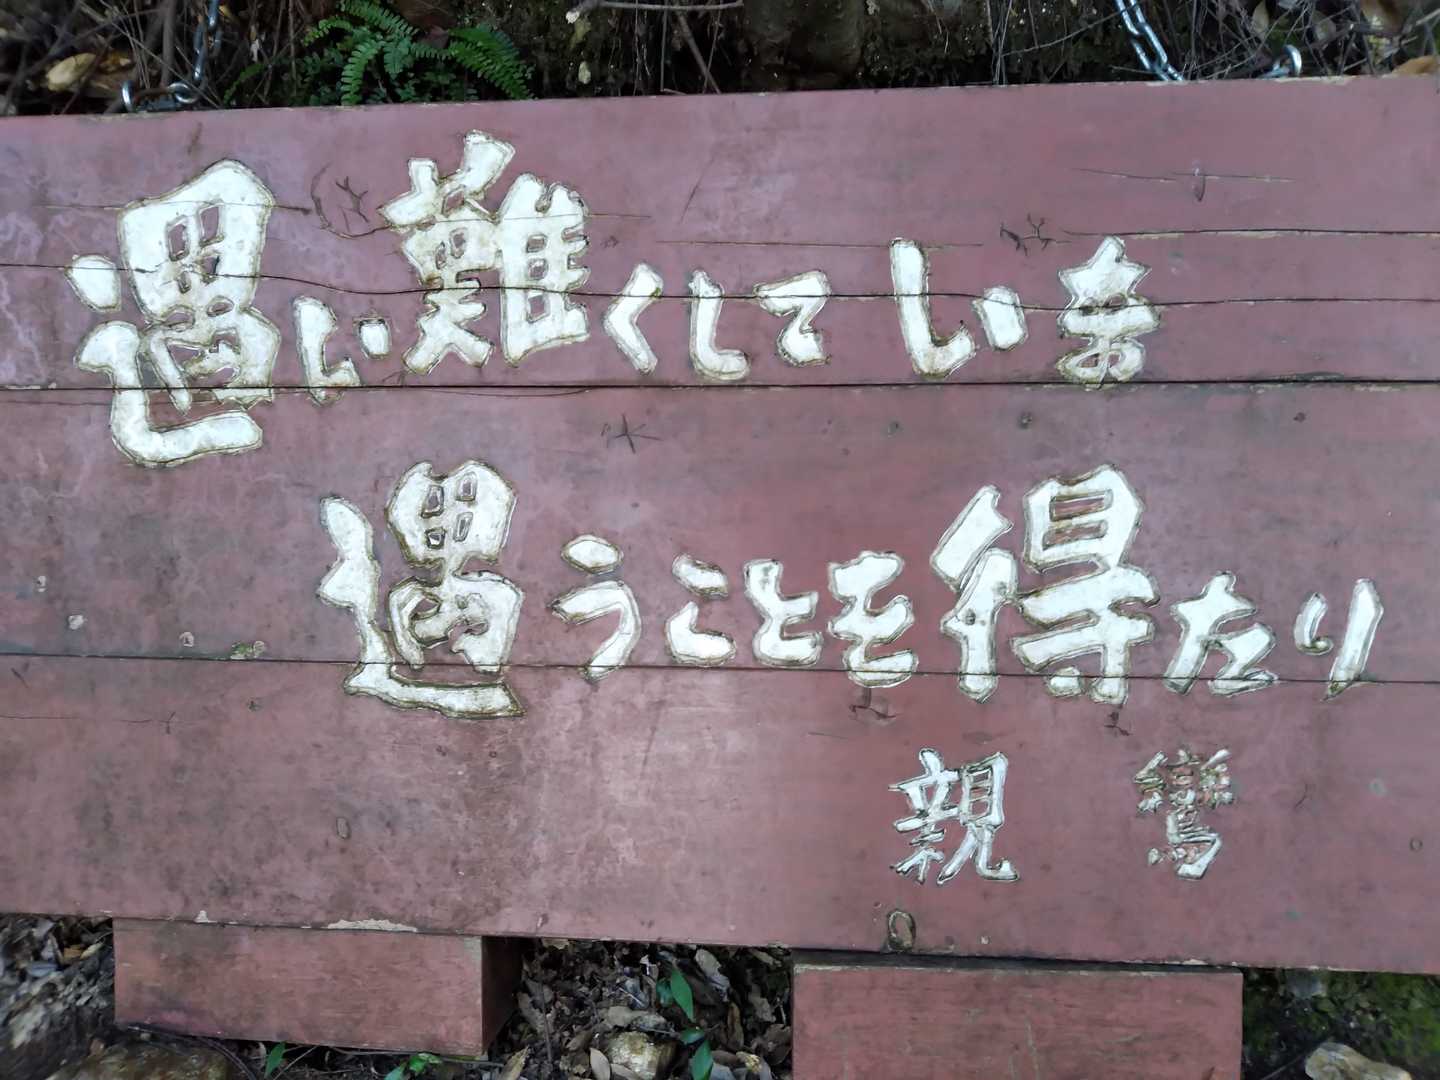 遇い難くしていま
遇うことを得たり
親鸞